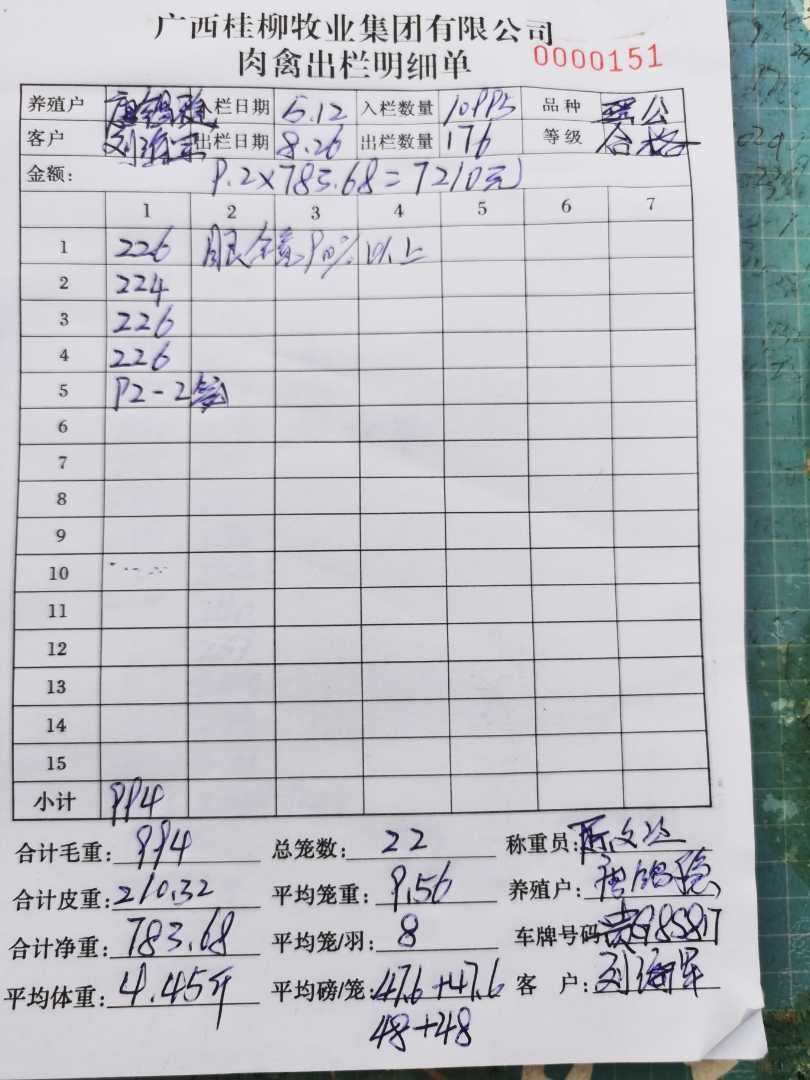 广西桂柳牧业集团有限公司
肉禽出栏明细单 0000151
养殖户 入栏日期 5.12 入栏数量 10995 品种 公
客户 出栏日期 8.26 出栏数量 176 等级 合格
金额: 9.2×783.68=7210元
1 2 3 4 5 6 7
1 226 90%以上
2 224
3 226
4 226
5 92-2
6
7
8
9
10
11
12
13
14
15
小计 994
合计毛重: 994 总笼数: 22 称重员:
合计皮重: 210.32 平均笼重: 9.56 养殖户:
合计净重: 783.68 平均笼/羽: 8 车牌号码
平均体重: 4.45斤 平均磅/笼: 47.6+47.6 客 户: 刘海军
48+48